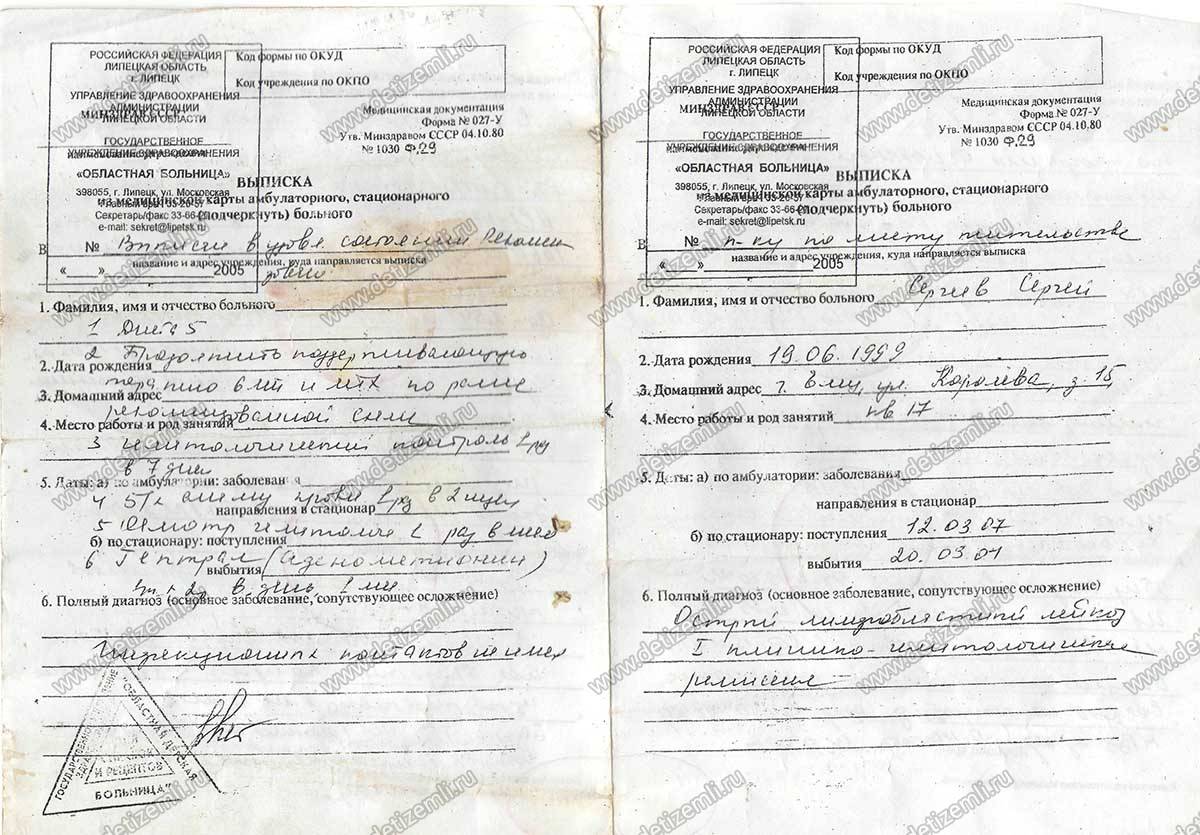 РОССИЙСКАЯ ФЕДЕРАЦИЯ
ЛИПЕЦКАЯ ОБЛАСТЬ
г. ЛИПЕЦК
УПРАВЛЕНИЕ ЗДРАВООХРАНЕНИЯ
АДМИНИСТРАЦИИ
МИНЗДРАВ СССР
ЛИПЕЦКОЙ ОБЛАСТИ
ГОСУДАРСТВЕННОЕ
УЧРЕЖДЕНИЕ ЗДРАВООХРАНЕНИЯ
«ОБЛАСТНАЯ БОЛЬНИЦА»
398055, г. Липецк, ул. Московская
Секретарь/факс 33-66-
e-mail: sekret@lipetsk.ru
№
« » 2005
Код формы по ОКУД
Код учреждения по ОКПО
Медицинская документация
Форма № 027-У
Утв. Минздравом СССР 04.10.80
№ 1030 Ф.29
ВЫПИСКА
из медицинской карты амбулаторного, стационарного
(подчеркнуть) больного
В Выписан в удовл. состоянии Рекомен
название и адрес учреждения, куда направляется выписка
1. Фамилия, имя и отчество больного
1 Диета 5
2 Продолжить поддерживающую
2. Дата рождения
терапию 6МП и МТХ по ранее
3. Домашний адрес
4. Место работы и род занятий
3 Гематологический контроль 1 рд
в 7 дней
5. Даты: а) по амбулатории: заболевания
4 Б/х анализ крови 1 рд в 2 нед
направления в стационар
5 Осмотр гематолога 1 раз в мес
б) по стационару: поступления
6 Гептрал (адеметионин)
выбытия
в день 1 мес
6. Полный диагноз (основное заболевание, сопутствующее осложнение)
Инфекционных контактов не имел
ОБЛАСТНАЯ ДЕТСКАЯ
И РЕЦЕПТОВ
БОЛЬНИЦА"
РОССИЙСКАЯ ФЕДЕРАЦИЯ
ЛИПЕЦКАЯ ОБЛАСТЬ
г. ЛИПЕЦК
УПРАВЛЕНИЕ ЗДРАВООХРАНЕНИЯ
АДМИНИСТРАЦИИ
МИНЗДРАВ СССР
ЛИПЕЦКОЙ ОБЛАСТИ
ГОСУДАРСТВЕННОЕ
УЧРЕЖДЕНИЕ ЗДРАВООХРАНЕНИЯ
«ОБЛАСТНАЯ БОЛЬНИЦА»
398055, г. Липецк, ул. Московская
Секретарь/факс 33-66-
e-mail: sekret@lipetsk.ru
№
« » 2005
Код формы по ОКУД
Код учреждения по ОКПО
Медицинская документация
Форма № 027-У
Утв. Минздравом СССР 04.10.80
№ 1030 Ф.29
ВЫПИСКА
из медицинской карты амбулаторного, стационарного
(подчеркнуть) больного
В п-ку по месту жительства
название и адрес учреждения, куда направляется выписка
1. Фамилия, имя и отчество больного Сергеев Сергей
2. Дата рождения 19.06.1999
3. Домашний адрес г. Елец, ул. Королёва, д. 15,
4. Место работы и род занятий кв 17
5. Даты: а) по амбулатории: заболевания
направления в стационар
б) по стационару: поступления 12.03.07
выбытия 20.03.07
6. Полный диагноз (основное заболевание, сопутствующее осложнение)
Острый лимфобластный лейкоз
I клинико-гематологическая
ремиссия
www.detizemli.ru